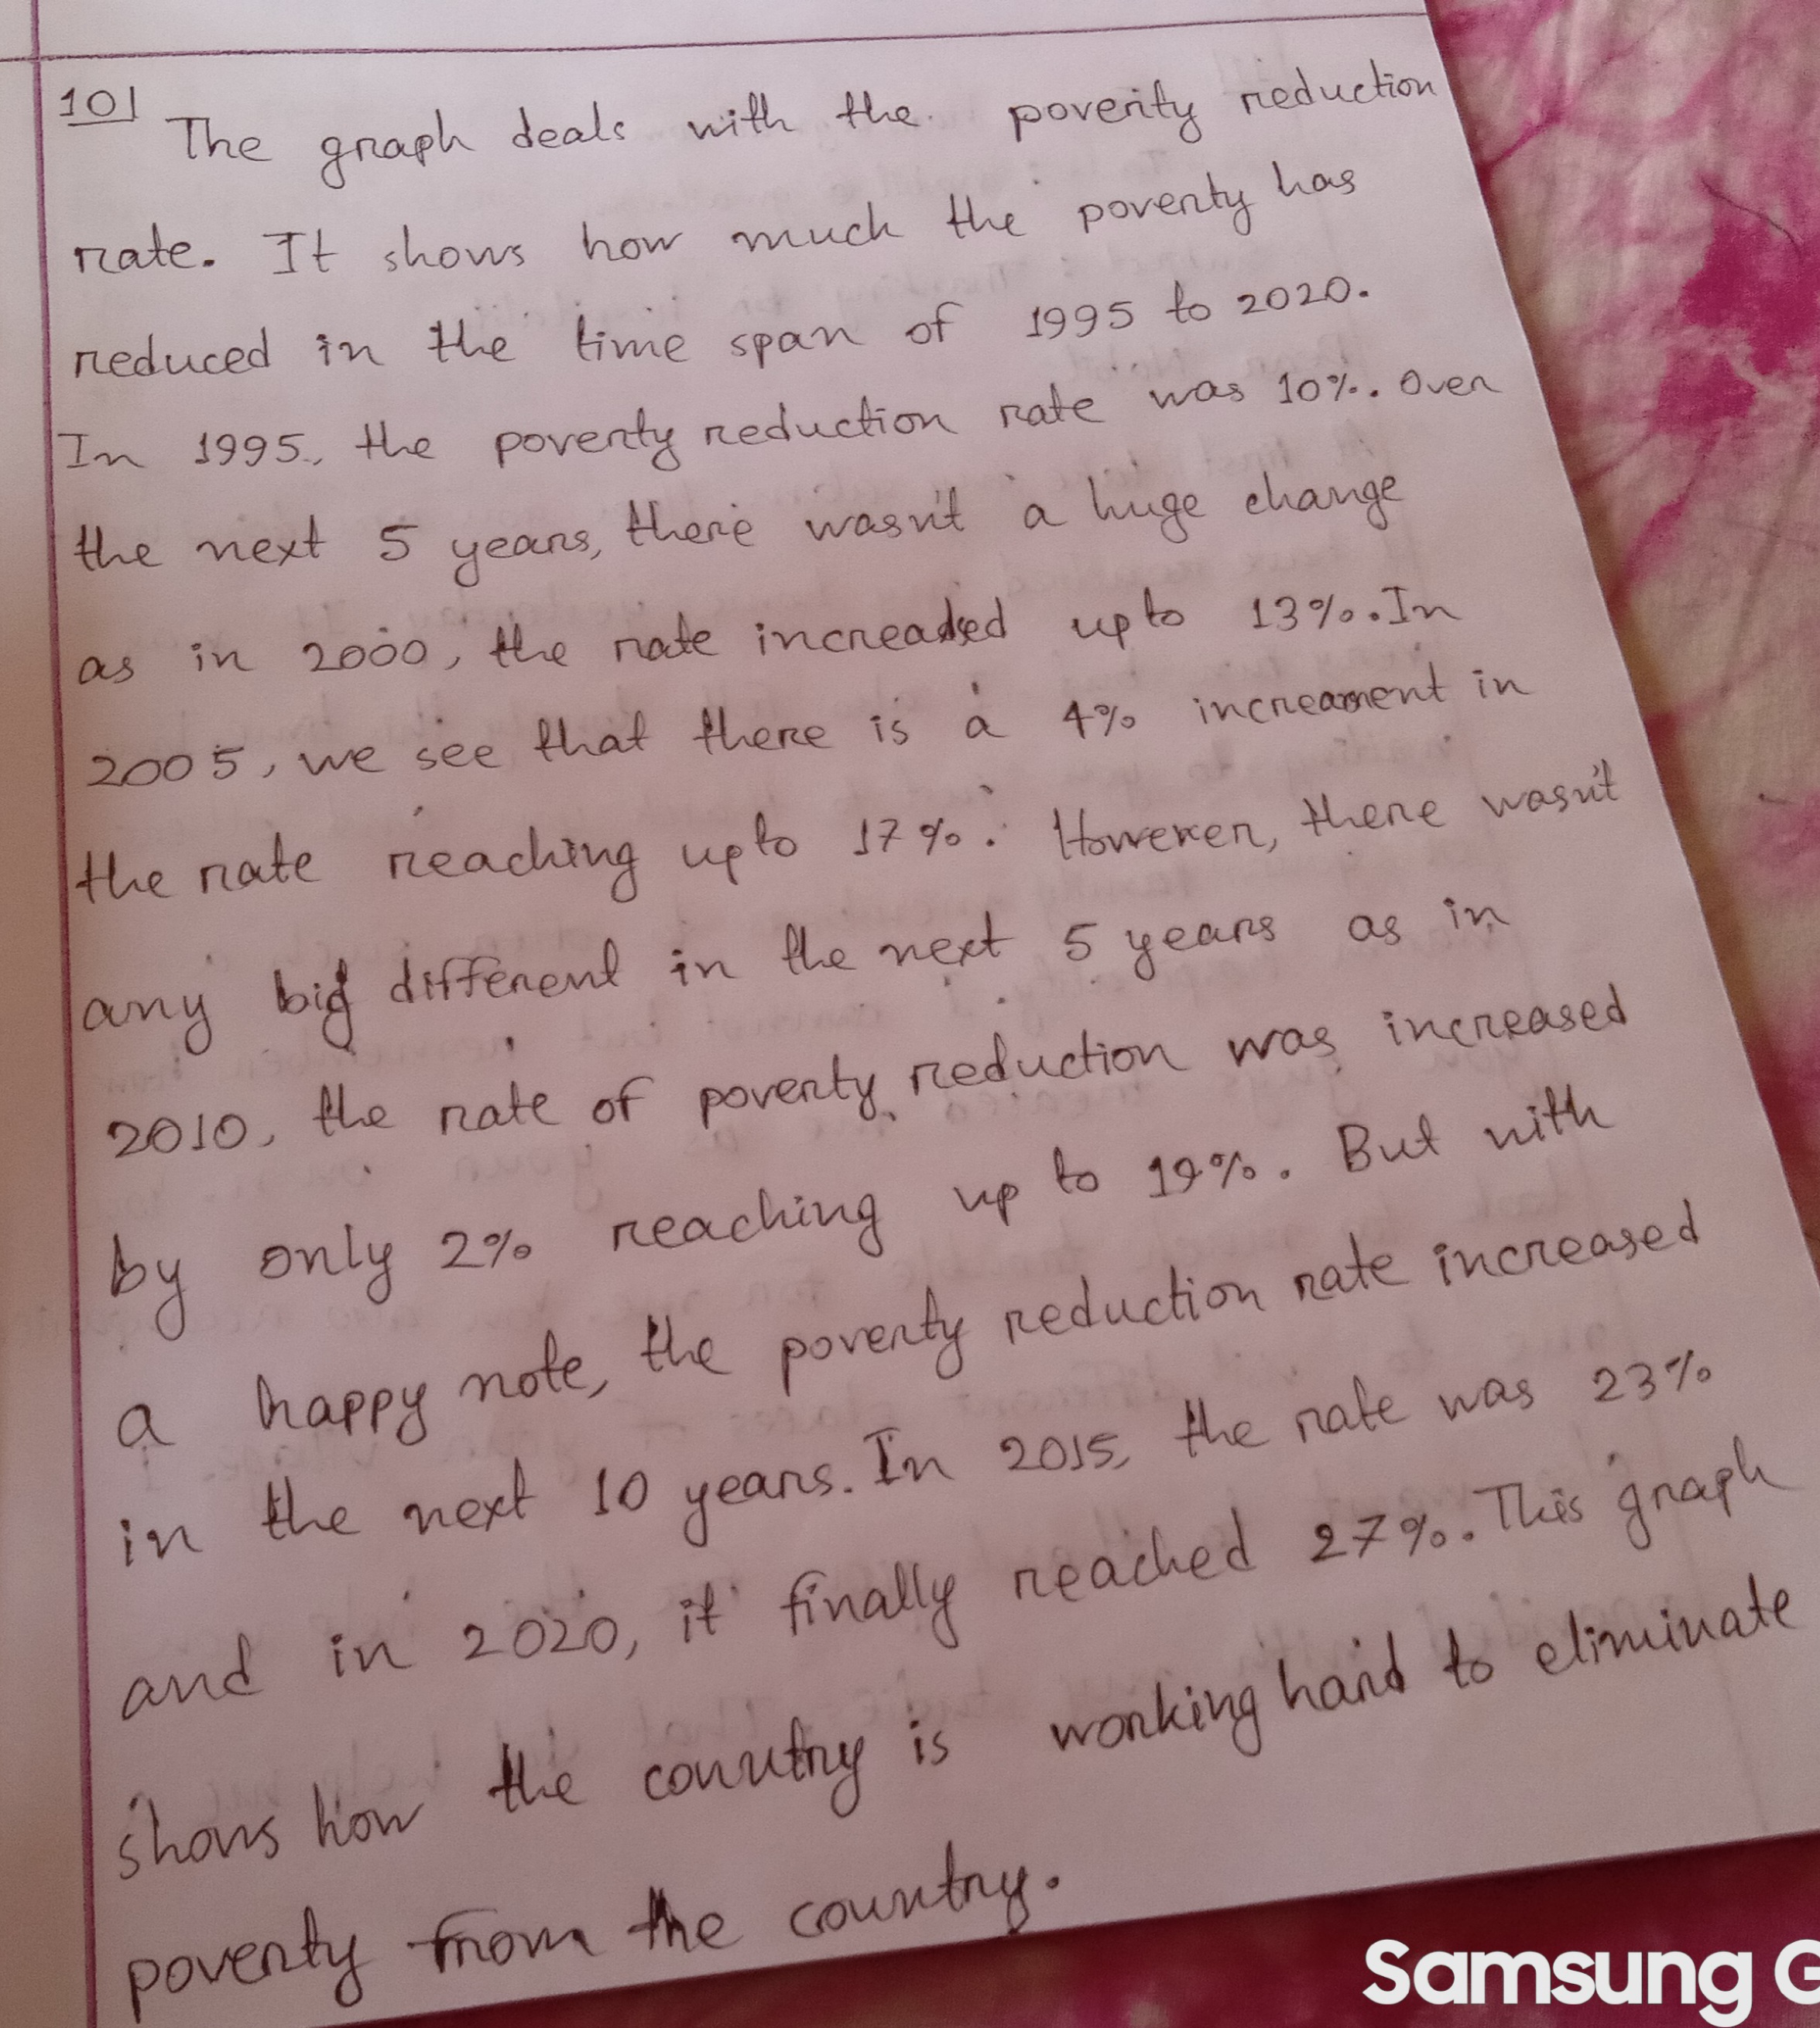 10|
The graph deals with the poverity reduction
rate. It shows how much the poverty has
reduced in the time span of 1995 to 2020.
In 1995, the poverty reduction rate was 10%. Over
the next 5 years, there wasn't a huge change
as in 2000, the rate increaded upto 13%. In
2005, we see that there is a 4% increament in
the rate reaching upto 17%. However, there wasn't
any big different in the next 5 years as in
2010, the rate of poverty reduction was increased
by only 2% reaching up to 19%. But with
a happy note, the poverty reduction rate increased
in the next 10 years. In 2015, the rate was 23%
and in 2020, it finally reached 27%. This graph
shows how the country is working hard to eliminate
poverty from the country.
Samsung G